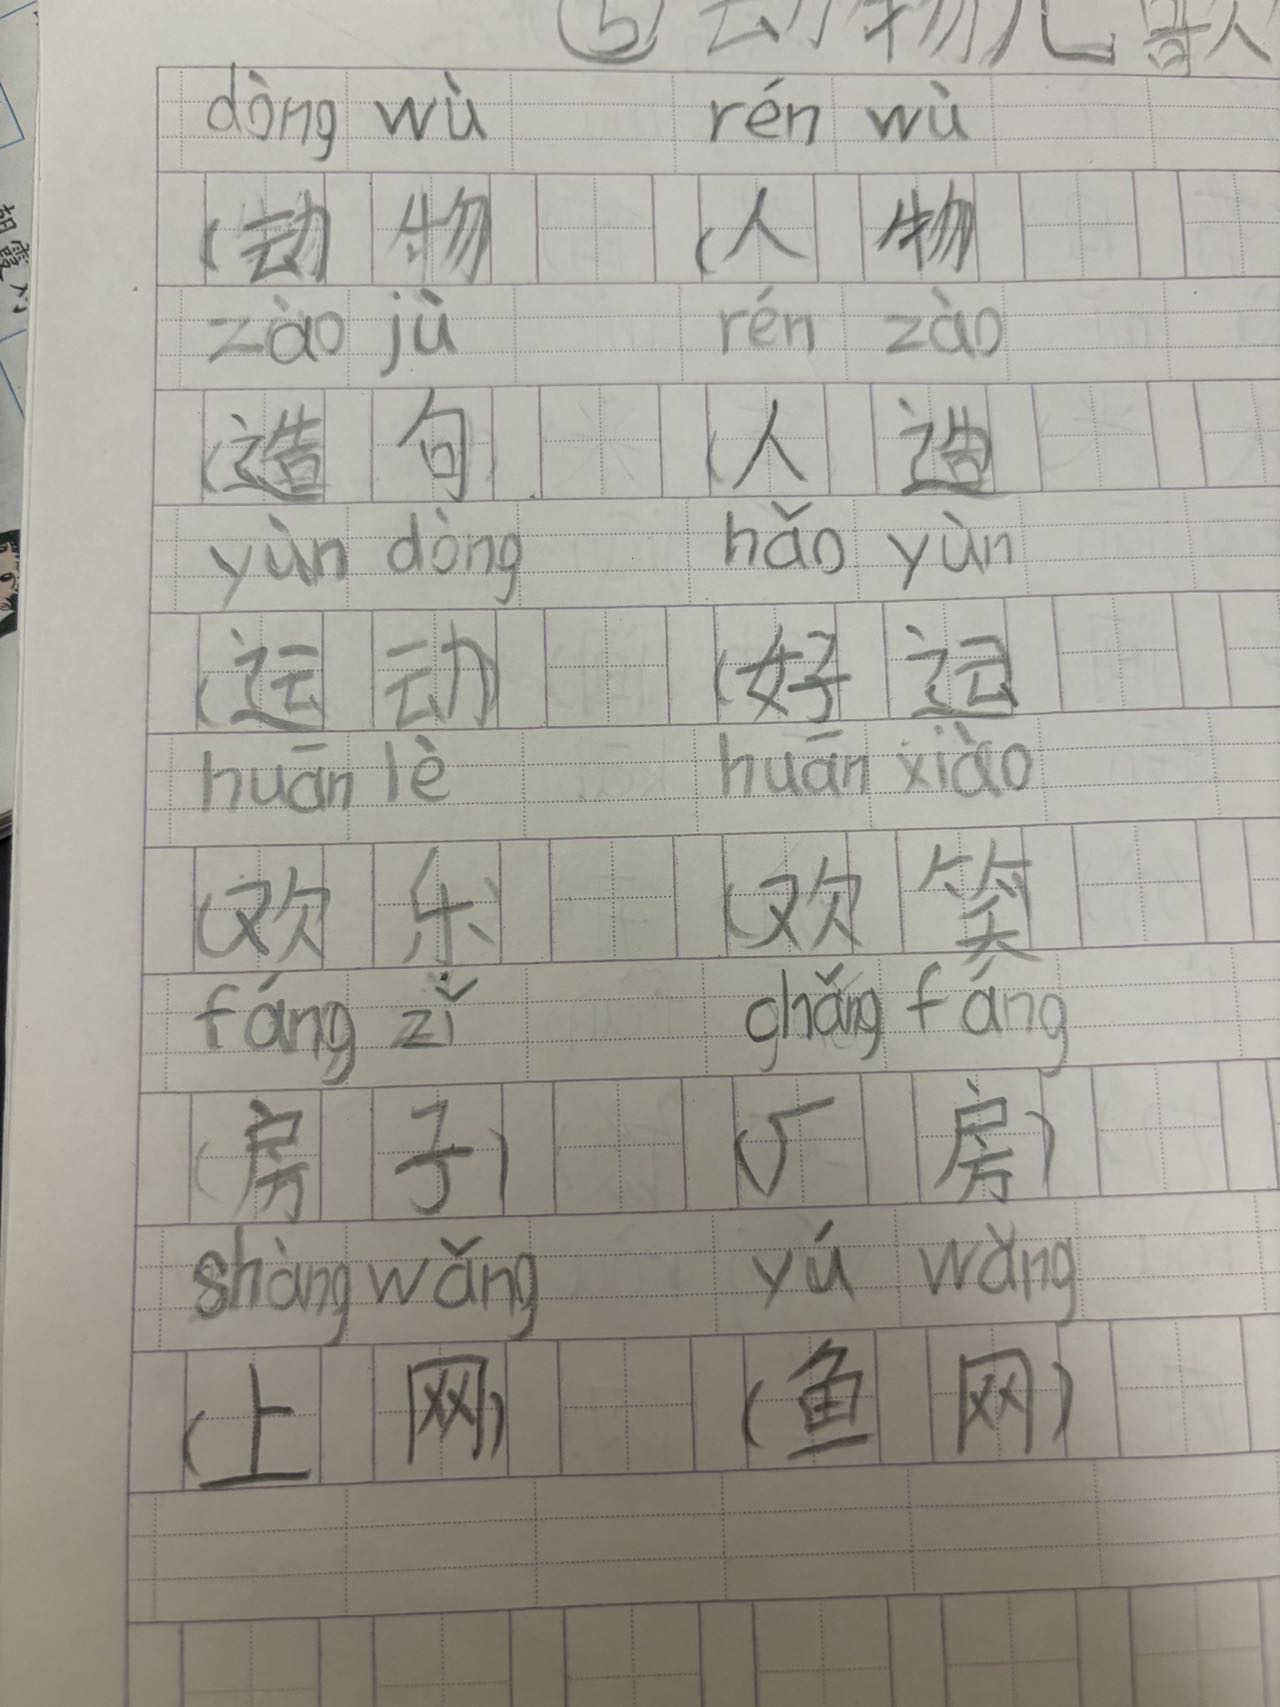 ⑤动物儿歌
dòng wù rén wù
(动物 (人物
zào jù rén zào
(造句) (人造
yùn dòng hǎo yùn
(运动) (好运
huān lè huān xiào
(欢乐) (欢笑
fáng zǐ chǎng fáng
(房子) (厂房)
shàng wǎng yú wǎng
(上网) (鱼网)